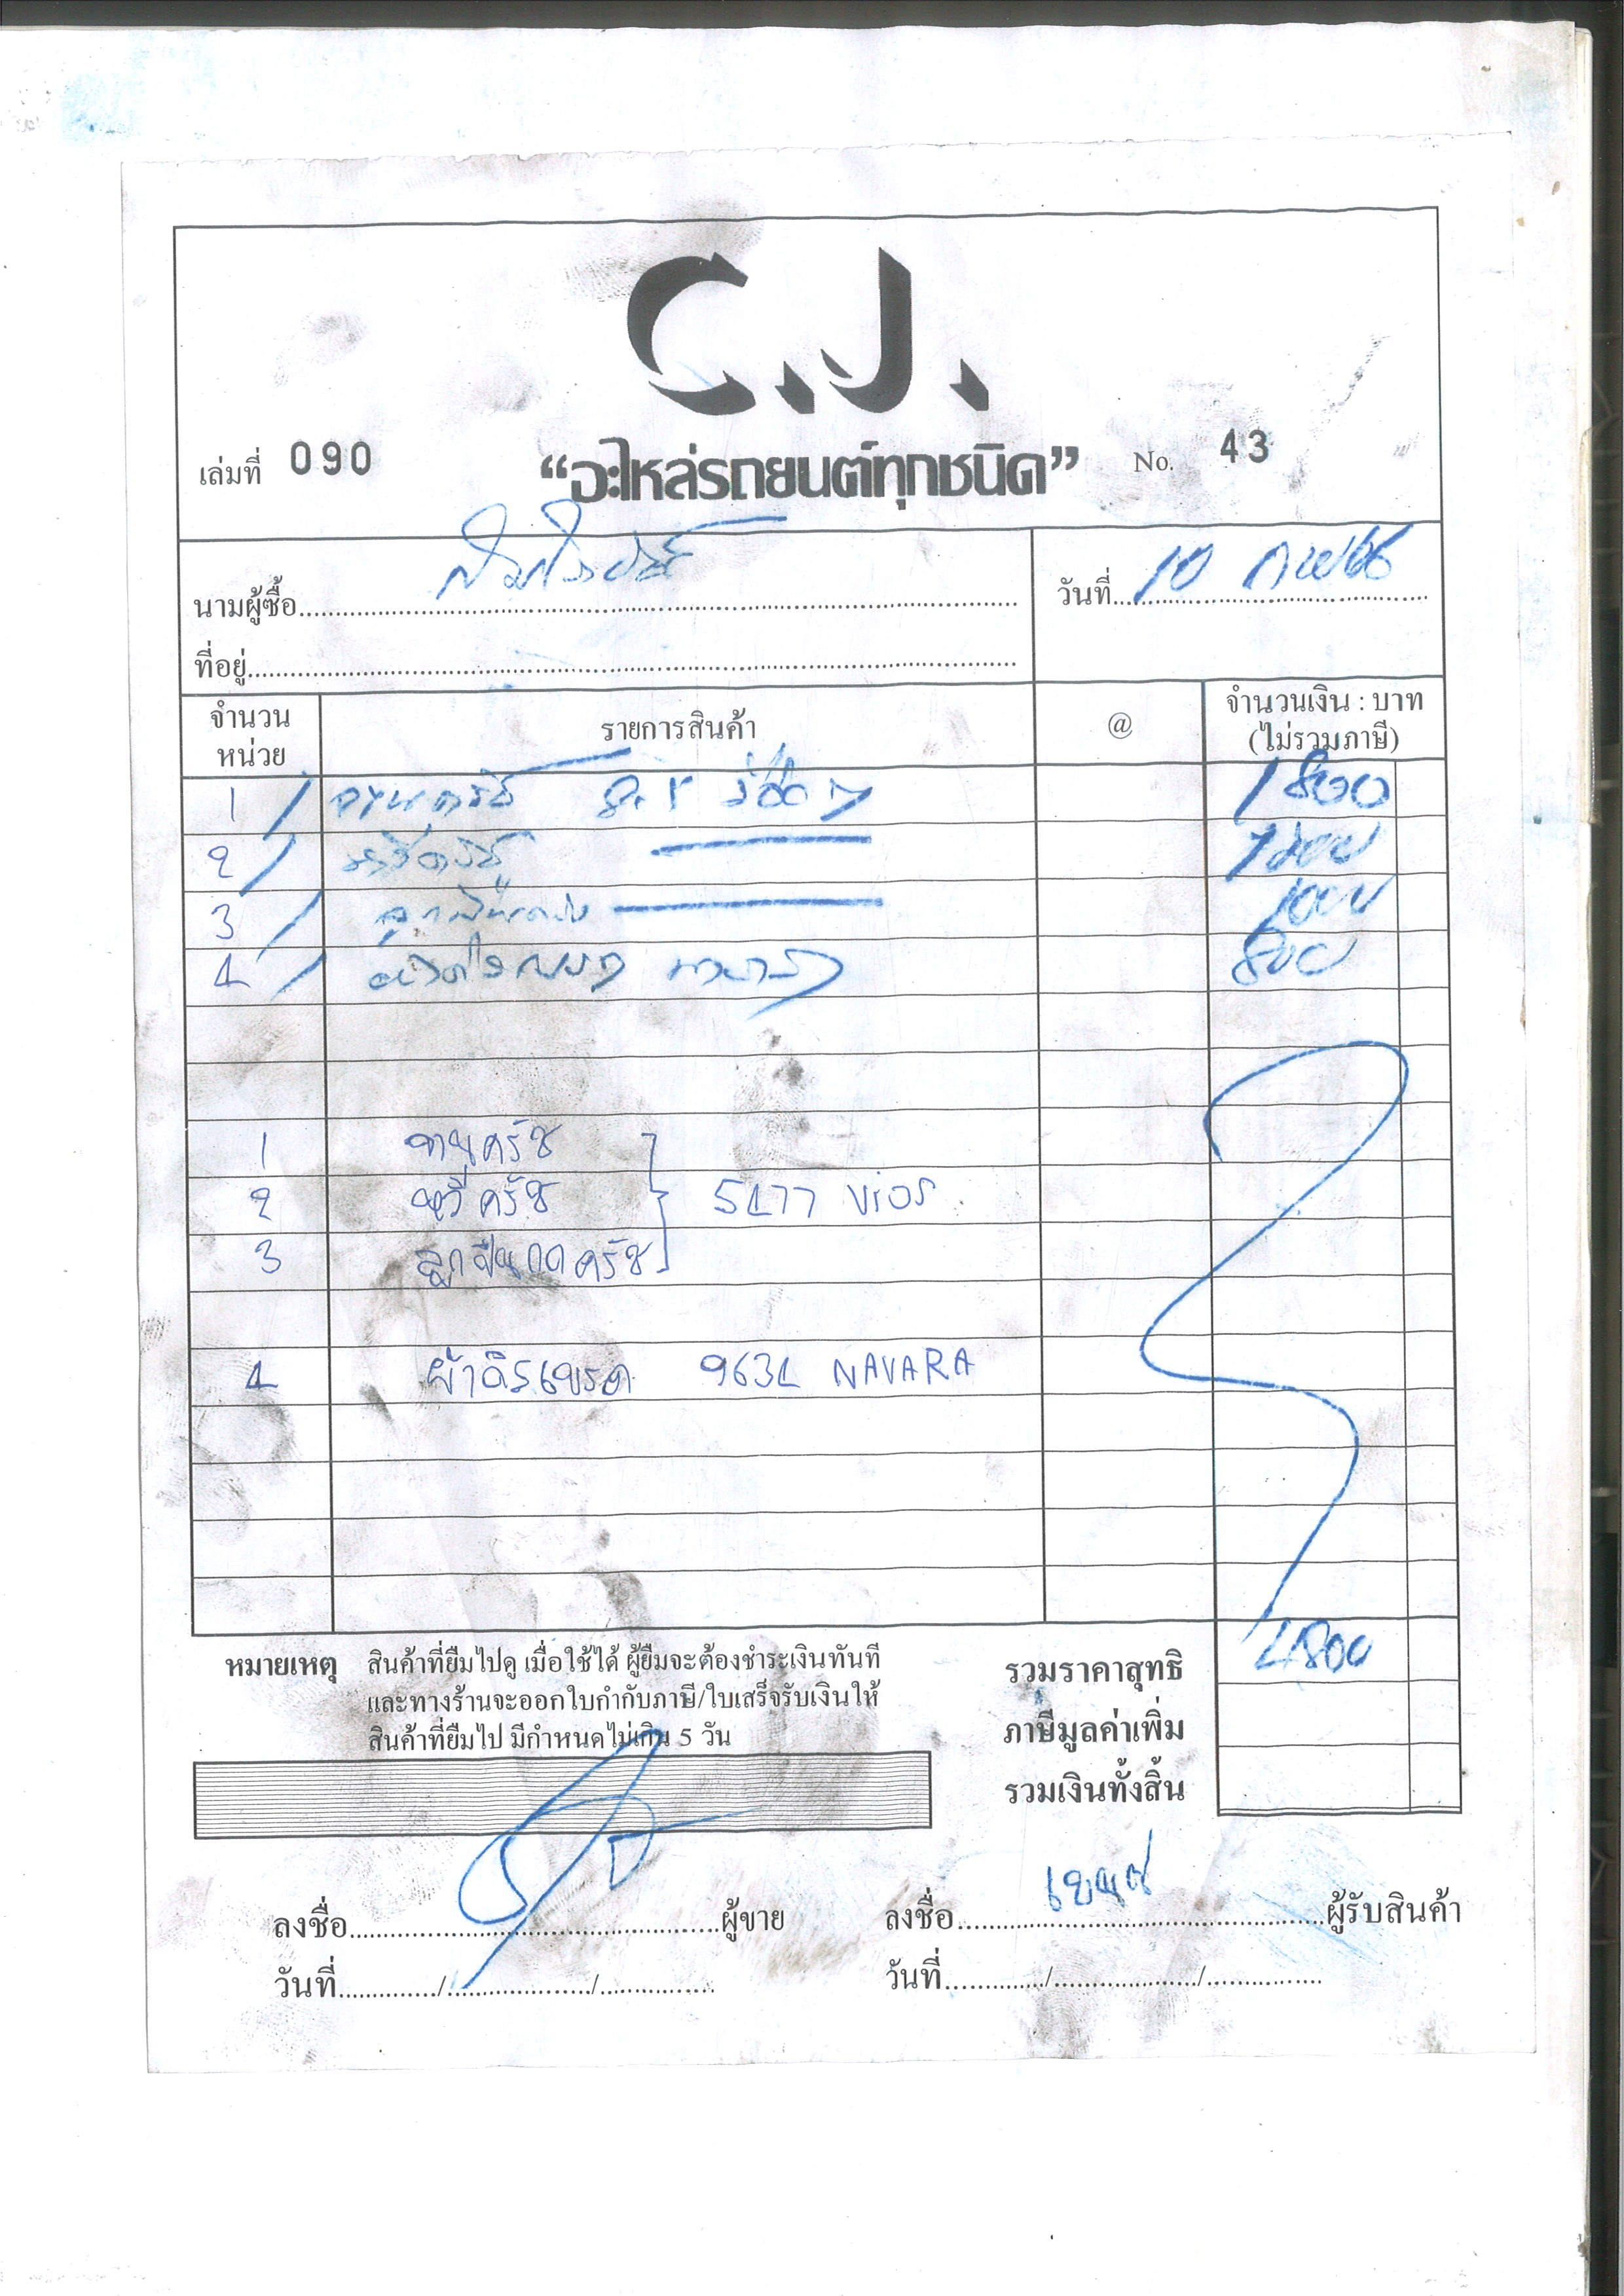 C.J.
เล่มที่ 090 “อะไหล่รถยนต์ทุกชนิด” No. 43
นามผู้ซื้อ วันที่ 10 กพ 66
ที่อยู่
จำนวนหน่วย รายการสินค้า @ จำนวนเงิน : บาท (ไม่รวมภาษี)
1 / จานครัช 1800
2 / หวีครัช 1200
3 / ลูกปืนกด 1000
4 / ผ้าดิสเบรค นาวาร่า 800
1 จานครัช
2 หวีครัช 5477 Vios
3 ลูกปืนกดครัช
4 ผ้าดิสเบรค 9634 NAVARA
หมายเหตุ สินค้าที่ยืมไปดู เมื่อใช้ได้ ผู้ยืมจะต้องชำระเงินทันที
และทางร้านจะออกใบกำกับภาษี/ใบเสร็จรับเงินให้
สินค้าที่ยืมไป มีกำหนดไม่เกิน 5 วัน
รวมราคาสุทธิ 4800
ภาษีมูลค่าเพิ่ม
รวมเงินทั้งสิ้น
ลงชื่อ ผู้ขาย ลงชื่อ ผู้รับสินค้า
วันที่ / / วันที่ / /